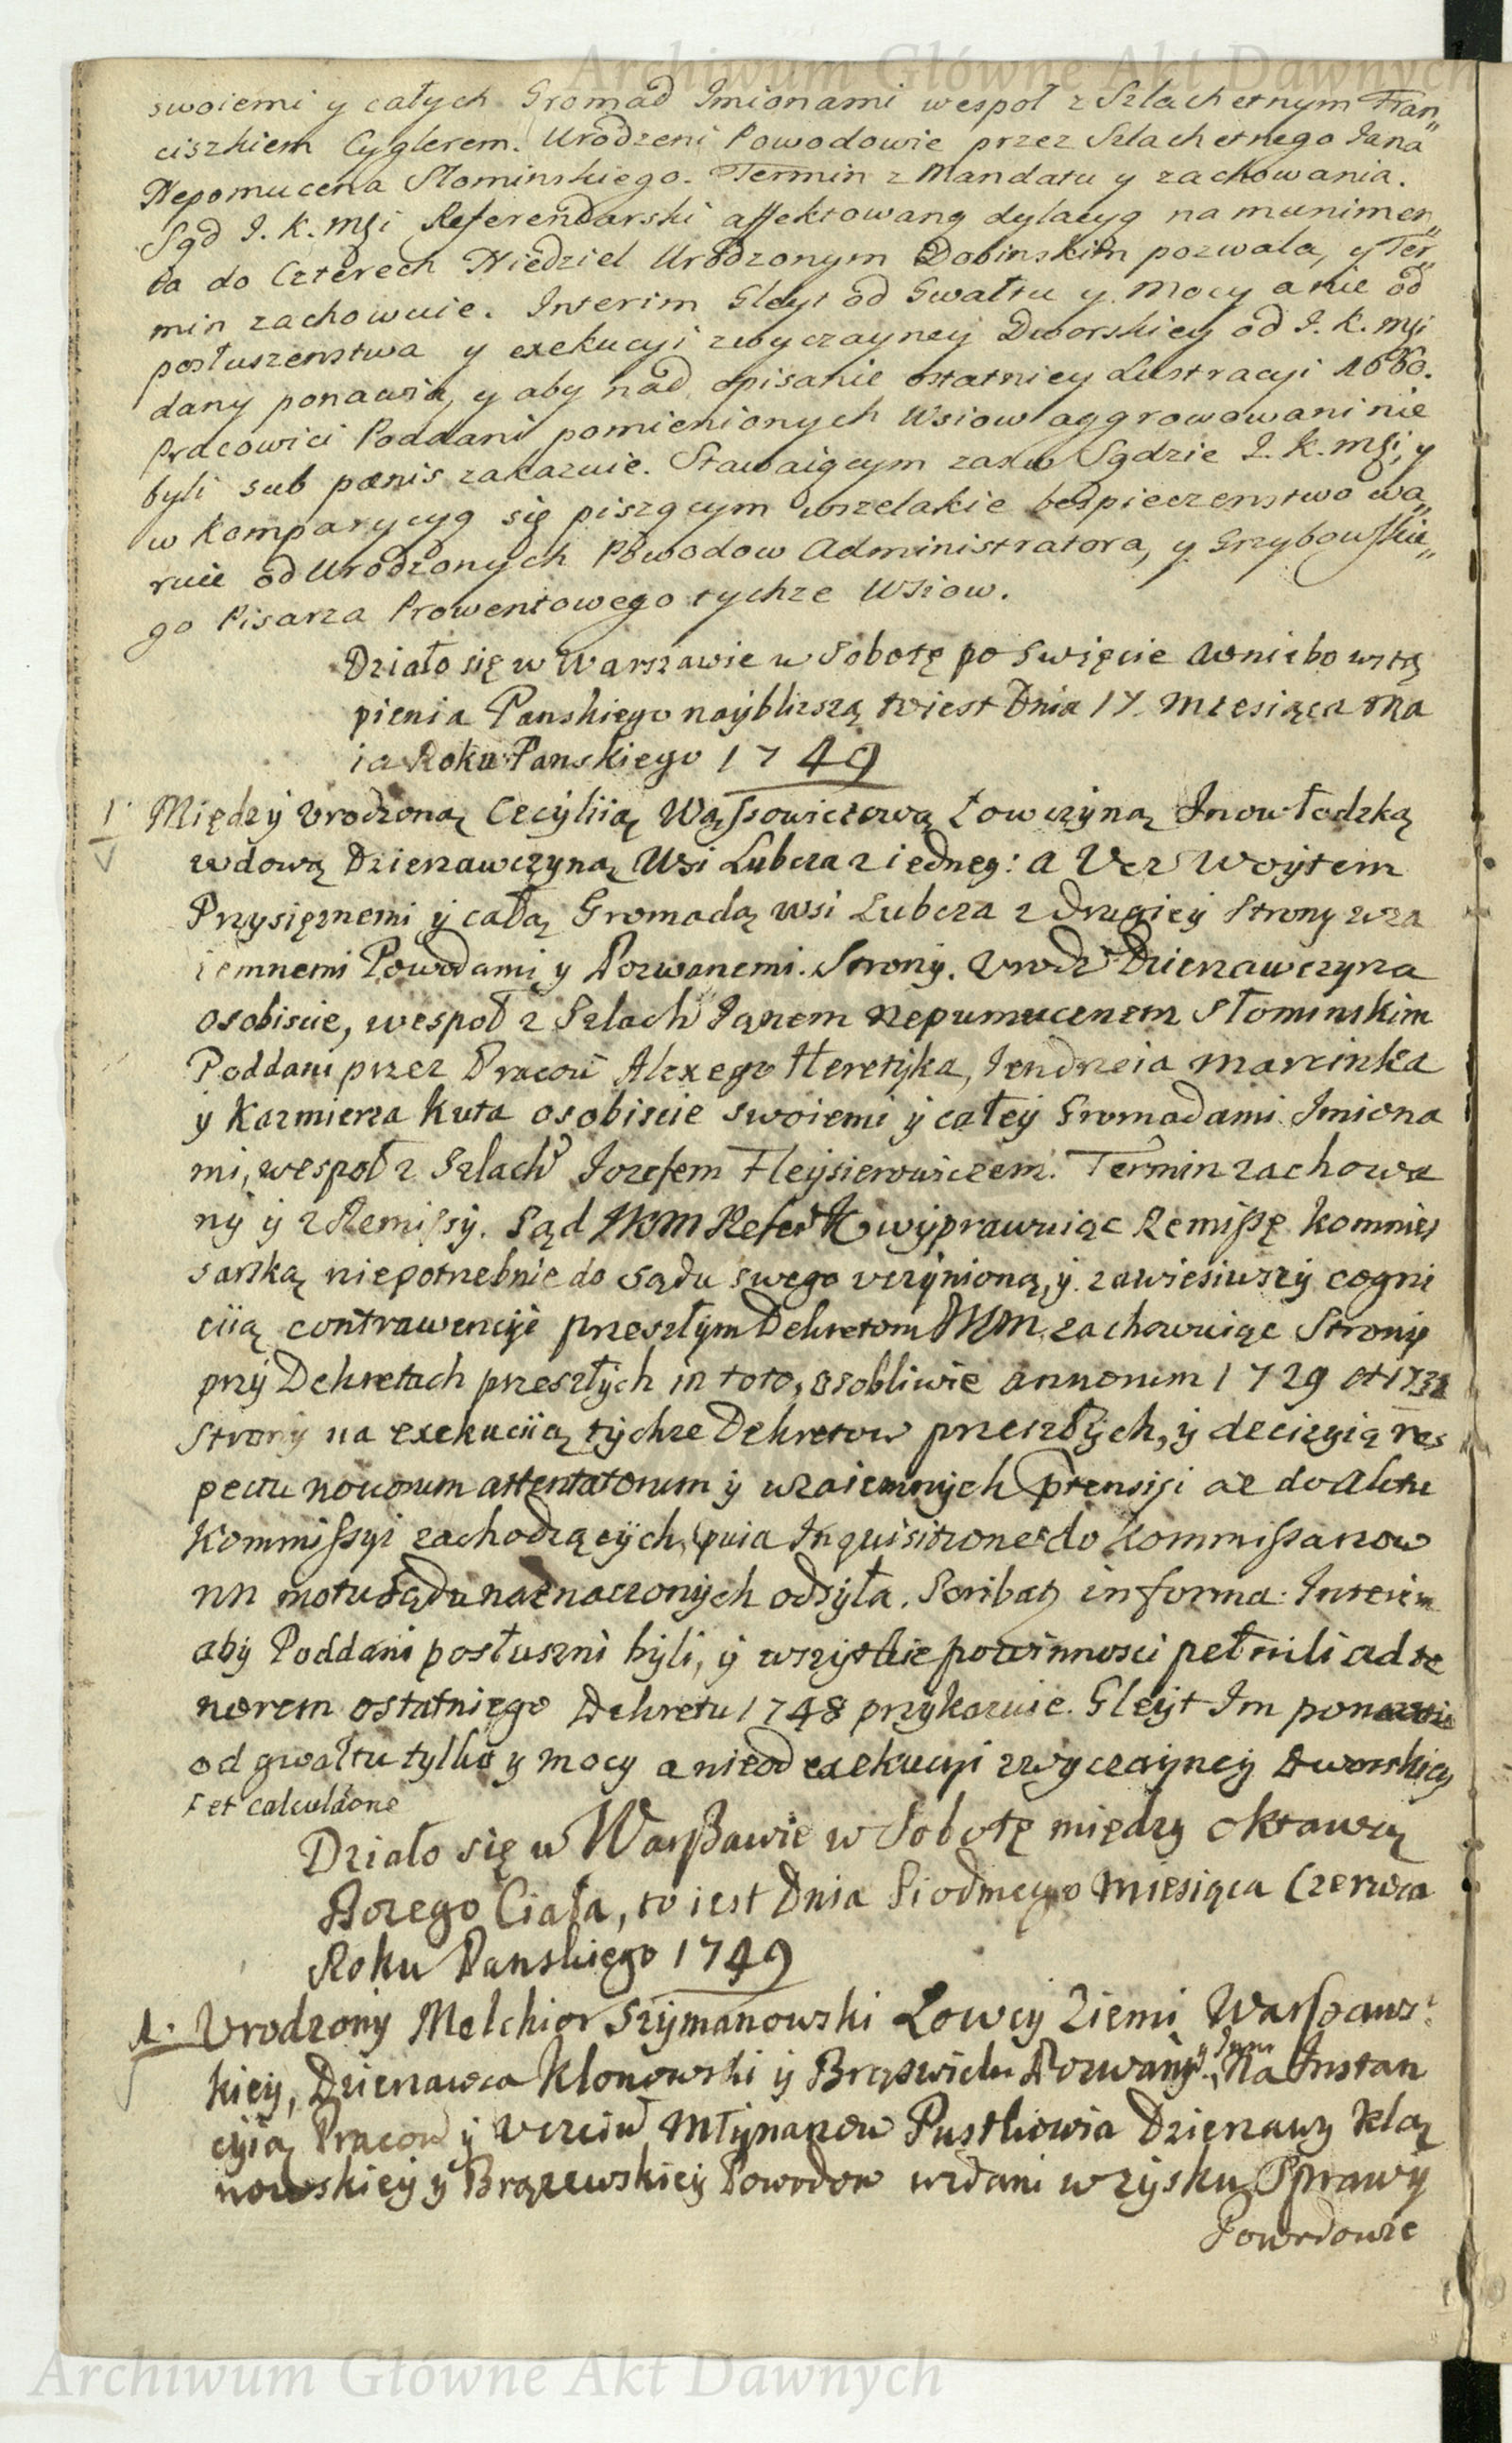 Archiwum Główne Akt Dawnych
swoiemi y całych Gromad Imionami wespoł z Szlachetnym Fran„
ciszkiem Cyglerem. Urodzeni Powodowie przez Szlachetnego Jana
Nepomucena Słominskiego. Termin z Mandatu y zachowania.
Sąd J. K. Mći Referendarski affektowaną dylacyą na munimen„
ta do Czterech Niedziel Urodzonym Dobinskim pozwala, y Ter„
min zachowuie. Interim Gleyt od Gwałtu y Mocy a nie od
posłuszenstwa y exekucyi zwyczayney Dworskiey od J. K. Mći
dany ponawia, y aby nad opisanie ostatniey Lustracyi 1660.
Pracowici Poddani pomienionych Wsiow aggrowowani nie
byli sub pœnis zakazuie. Stawaiącym zaś w Sądzie J. K. Mći, y
w Komparycyą się piszącym wszelakie bespieczenstwo wa„
ruie od Urodzonych Powodow Administratora, y Grzybowskie„
go Pisarza Prowentowego tychze Wsiow.
Działo się w Warszawie w Sobotę po Swięcie Wniebo wstą
pienia Panskiego nayblizszą to iest Dnia 17. Miesiąca Ma
ia Roku Panskiego 1749
1. Między Vrodzoną Cecyliią Wąssowiczową Łowczyną Inowłodzką
wdową Dzierzawczyną Wsi Lubcza z iedney: a Vcz Woytem
Przysięznemi y całą Gromadą wsi Lubcza z drugiey Strony wza
iemnemi Powodami y Pozwanemi. Strony. Vrodz Dzierzawczyna
osobiscie, wespoł z Szlach Janem Nepumucenem Słominskim
Poddani przez Pracow Alexego Heretyka, Jendrzeia Marcinka
y Kazmierza Kuta osobiscie swoiemi y całey Gromadami Imiona
mi, wespoł z Szlach Jozefem Fleysierowiczem. Termin zachowa
ny y z Remissy. Sąd JKM Refer K wyprawuiąc Remissę Kommis
sarską niepotrzebnie do Sądu swego vczynioną, y zawiesiwszy cogni
ciią contrawencyi przeszłym Dekretom JKM, zachowuiąc Strony
przy Dekretach przeszłych in toto, osobliwie annorum 1729 et 1738
Strony na exekuciią tychze Dekretow przeszłych, y decizyią res
pectu novorum attentatorum y wzaiemnych Prensiji az do Aktu
Kommissyi zachodzących, pvia Inquisitione F do Kommissarzow
nn motu Sądu naznaczonych odsyła. Scribat in forma. Interim
aby Poddani posłuszni byli, y wszystkie powinnosci pełnili ad te
norem ostatniego Dekretu 1748 przykazuie. Gleyt Im ponawia
od gwałtu tylko y mocy a nie od exekucyi zwyczayney Dworskiey
F et calculaõne
Działo się w Warszawie w Sobotę między oktawą
Bozego Ciała, to iest Dnia Siodmego Miesiąca Czerwca
Roku Panskiego 1749
1. Vrodzony Melchior Szymanowski Łowcy Ziemi Warszaws
kiey, Dzierzawca Klonowski y Brąswicku Pozwany y Inni. Na Instan
cyią Pracow y Vczciw Młynarzow Pustkowia Dzierzawy Klą
nowskiey y Brązewskiey Powodow wzdani w zysku Sprawy
Powodowie
Archiwum Główne Akt Dawnych